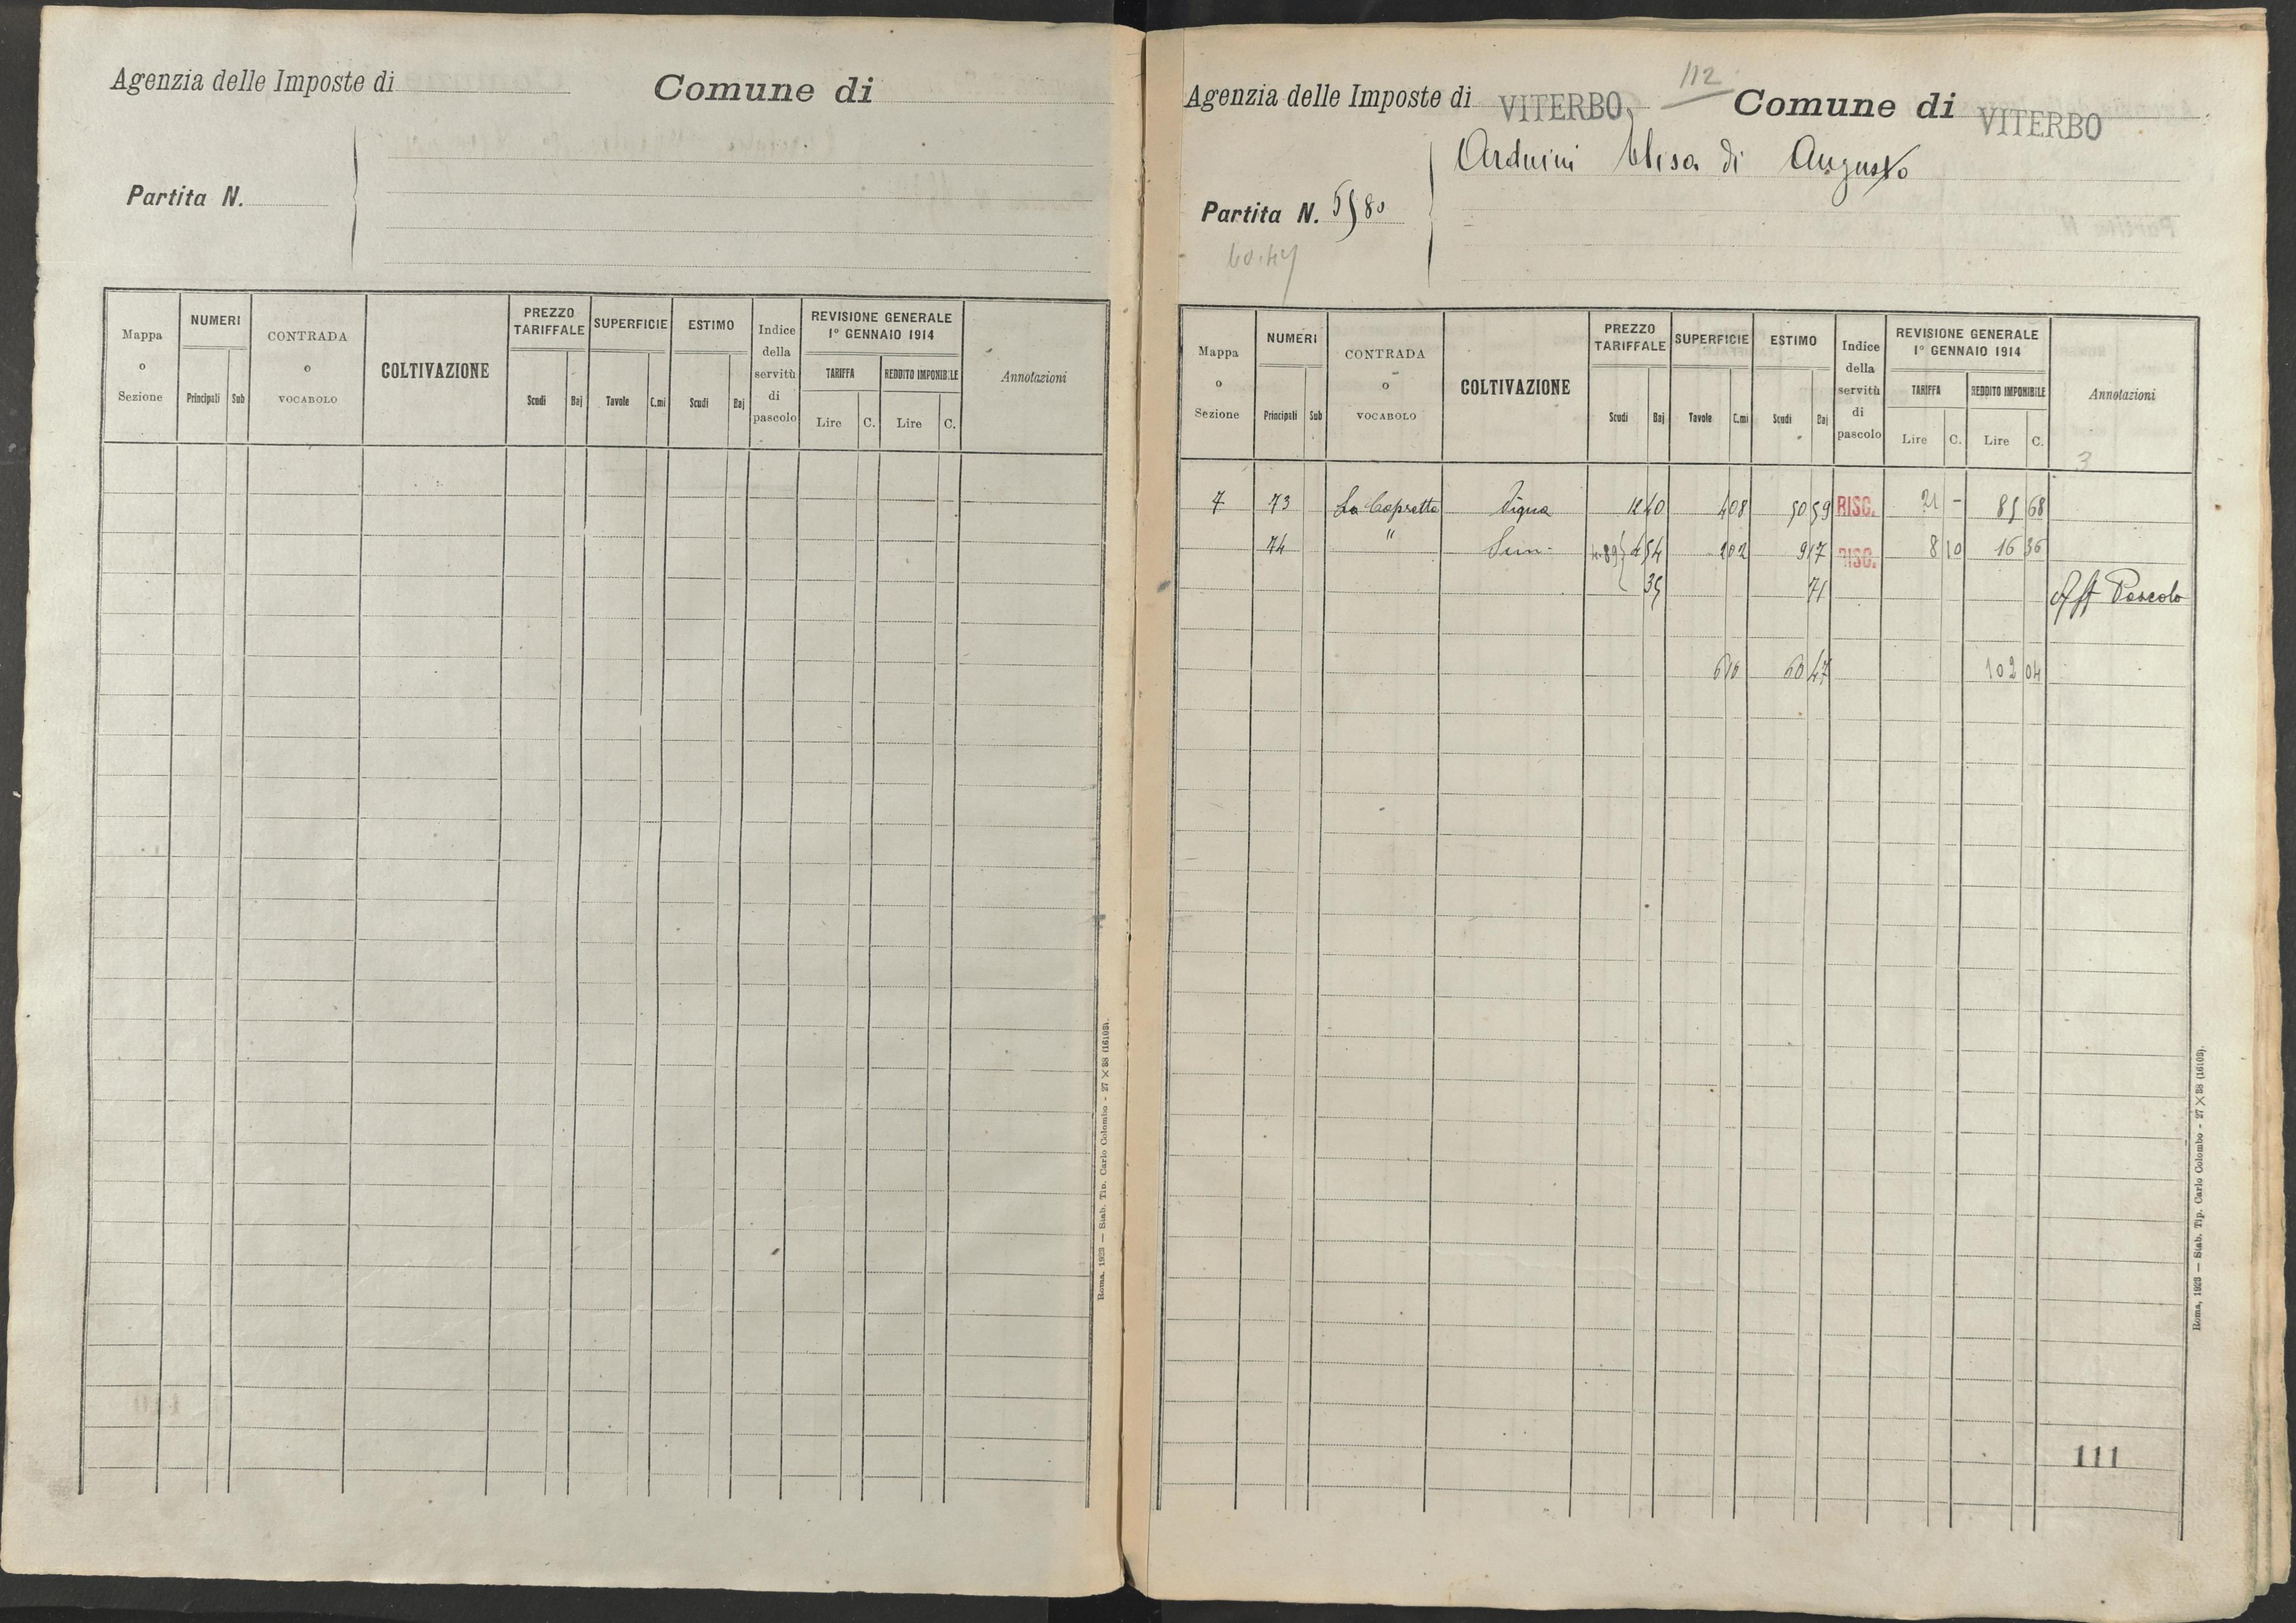 Agenzia delle Imposte di Comune di
Partita N.
Mappa o Sezione
NUMERI
Principali Sub
CONTRADA o VOCABOLO
COLTIVAZIONE
PREZZO TARIFFALE
Scudi Baj
SUPERFICIE
Tavole C.mi
ESTIMO
Scudi Baj
Indice della servitù di pascolo
REVISIONE GENERALE
1° GENNAIO 1914
TARIFFA REDDITO IMPONIBILE
Lire C. Lire C.
Annotazioni
Roma, 1923 — Stab. Tip. Carlo Colombo - 27 × 38 (16103).
112
Agenzia delle Imposte di VITERBO Comune di VITERBO
Arduini Elisa di Augusto
Partita N. 5580
60.47
Mappa o Sezione
NUMERI
Principali Sub
CONTRADA o VOCABOLO
COLTIVAZIONE
PREZZO TARIFFALE
Scudi Baj
SUPERFICIE
Tavole C.mi
ESTIMO
Scudi Baj
Indice della servitù di pascolo
REVISIONE GENERALE
1° GENNAIO 1914
TARIFFA REDDITO IMPONIBILE
Lire C. Lire C.
Annotazioni
3
7 73 La Capretta Vigna 12 40 4 08 50 59 RISC. 21 - 85 68
74 " Sem. 4 54 2 02 9 17 RISC. 8 10 16 36
35 71 Aff Pascolo
6 10 60 47 102 04
111
Roma, 1923 — Stab. Tip. Carlo Colombo - 27 × 38 (16103).